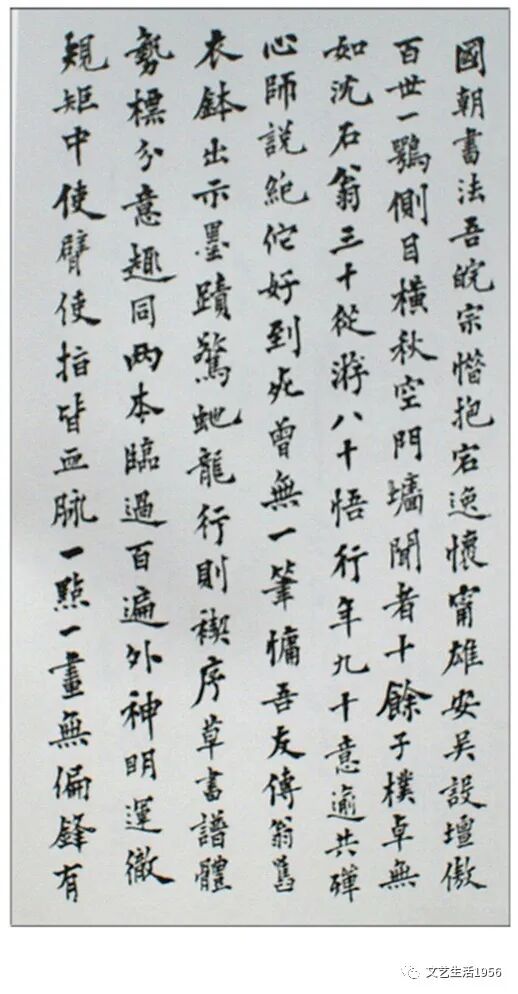 國朝書法吾皖宗惜抱宕逸懷甯雄安吳設壇傲
百世一鶚側目橫秋空門墻聞者十餘子樸卓無
如沈石翁三十從游八十悟行年九十意逾共殫
心師說紀佗好到死曾無一筆慵吾友傳翁舊
衣鉢出示墨蹟驚虵龍行則禊序草書譜體
勢標分意趣同兩本臨過百遍外神明運徹
規矩中使臂使指皆血脉一點一畫無偏鋒有
文艺生活1956